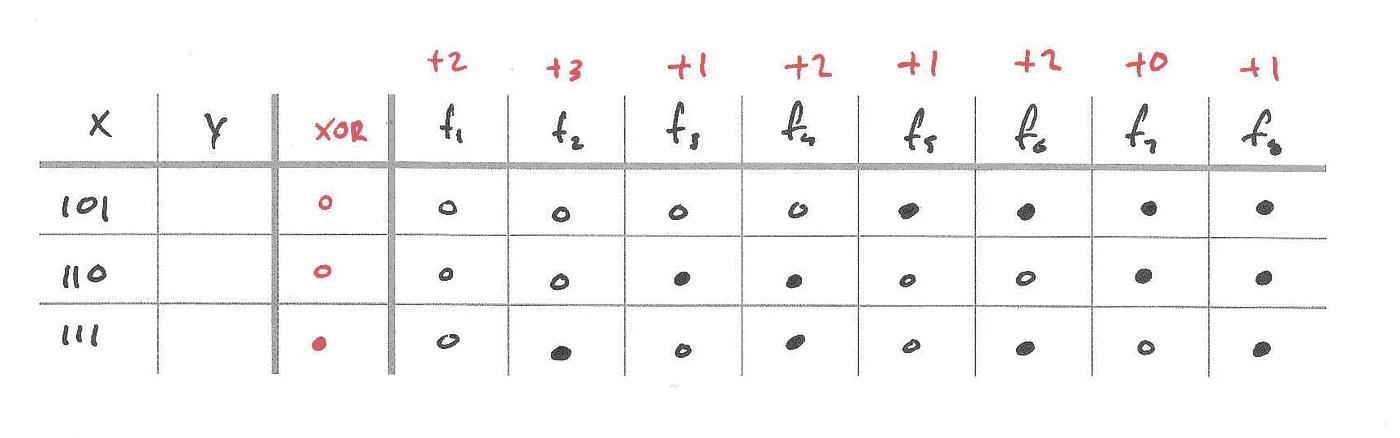 +2 +3 +1 +2 +1 +2 +0 +1
X Y XOR f₁ f₂ f₃ f₄ f₅ f₆ f₇ f₈
101 ○ ○ ○ ○ ○ ● ● ● ●
110 ○ ○ ○ ● ● ○ ○ ● ●
111 ● ○ ● ○ ● ○ ● ○ ●